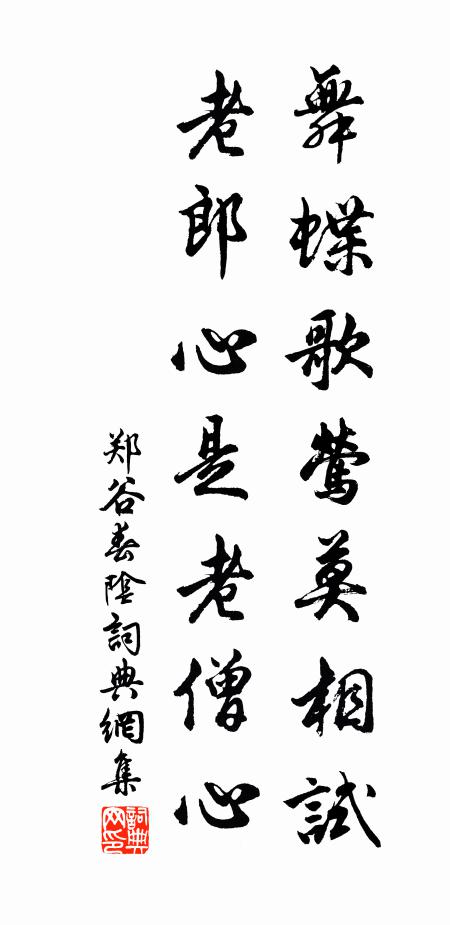 舞蝶歌鶯莫相試
老郎心是老僧心
郑谷春陰詞典網集
詞典网印